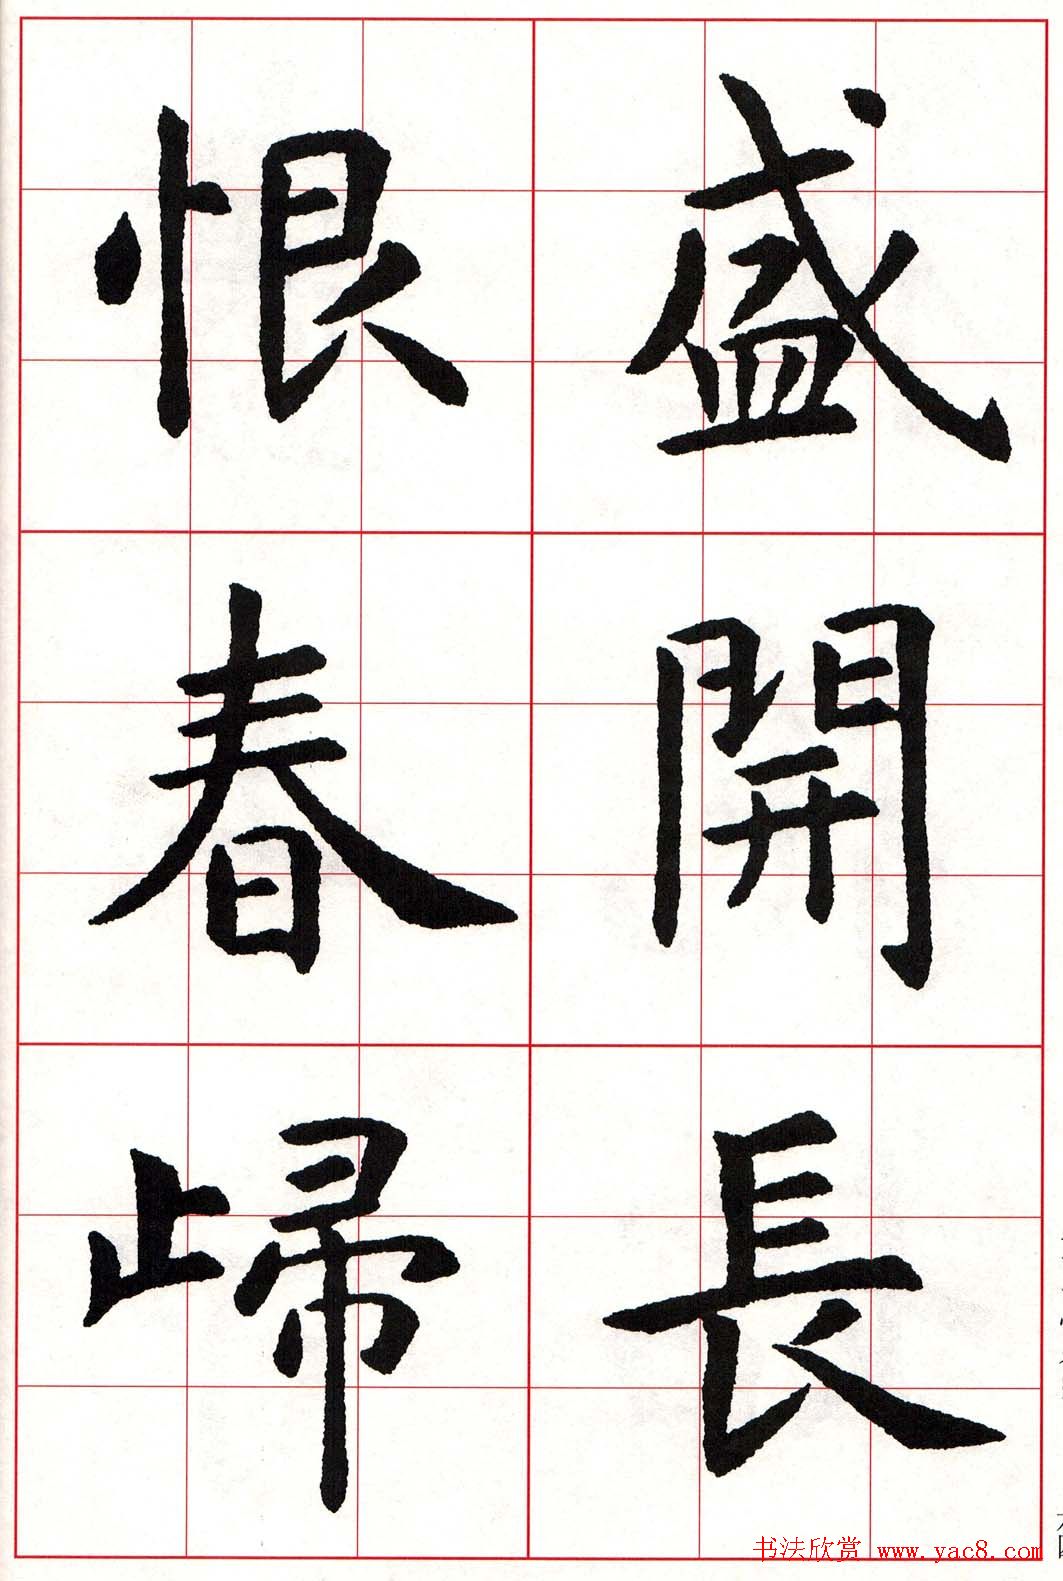 盛開長
恨春歸
书法欣赏 www.yac8.com